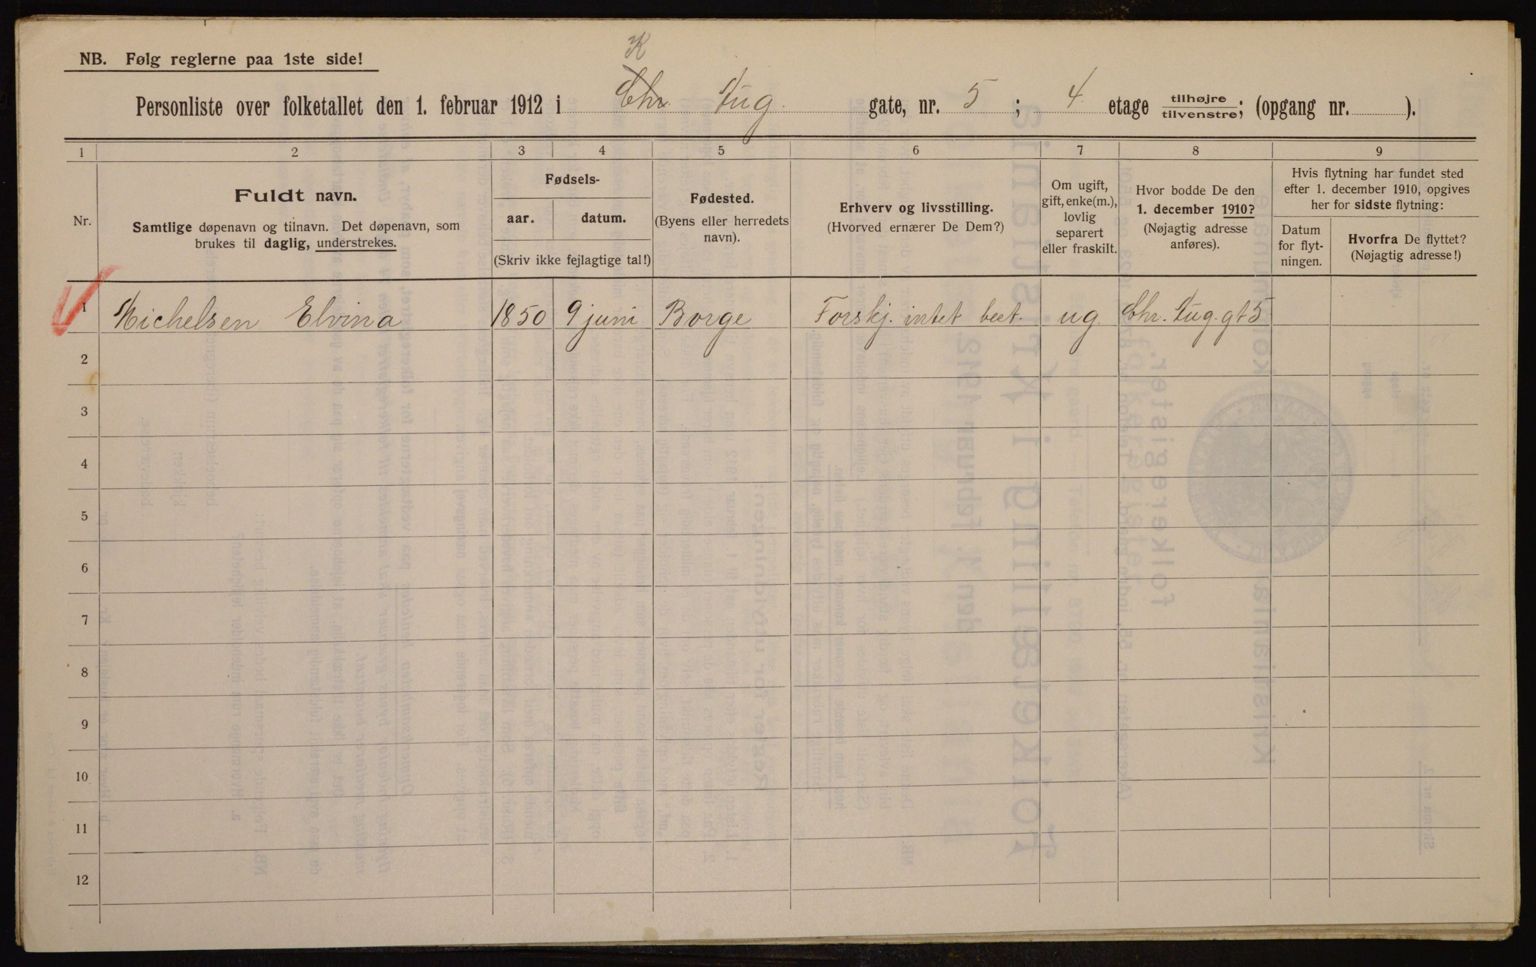 NB. Følg reglerne paa 1ste side!
K
Personliste over folketallet den 1. februar 1912 i Chr Aug. gate, nr. 5 ; 4 etage tilhøjre tilvenstre; (opgang nr. ).
1 2 3 4 5 6 7 8 9
Nr.
Fuldt navn.
Samtlige døpenavn og tilnavn. Det døpenavn, som
brukes til daglig, understrekes.
Fødsels-
aar. datum.
(Skriv ikke fejlagtige tal!)
Fødested.
(Byens eller herredets
navn).
Erhverv og livsstilling.
(Hvorved ernærer De Dem?)
Om ugift,
gift, enke(m.),
lovlig
separert
eller fraskilt.
Hvor bodde De den
1. december 1910?
(Nøjagtig adresse
anføres).
Hvis flytning har fundet sted
efter 1. december 1910, opgives
her for sidste flytning:
Datum
for flyt-
ningen.
Hvorfra De flyttet?
(Nøjagtig adresse!)
1 Michelsen Elvina 1850 9 juni Borge Forskj. intet best. ug Chr. Aug. gt 5
2
3
4
5
6
7
8
9
10
11
12